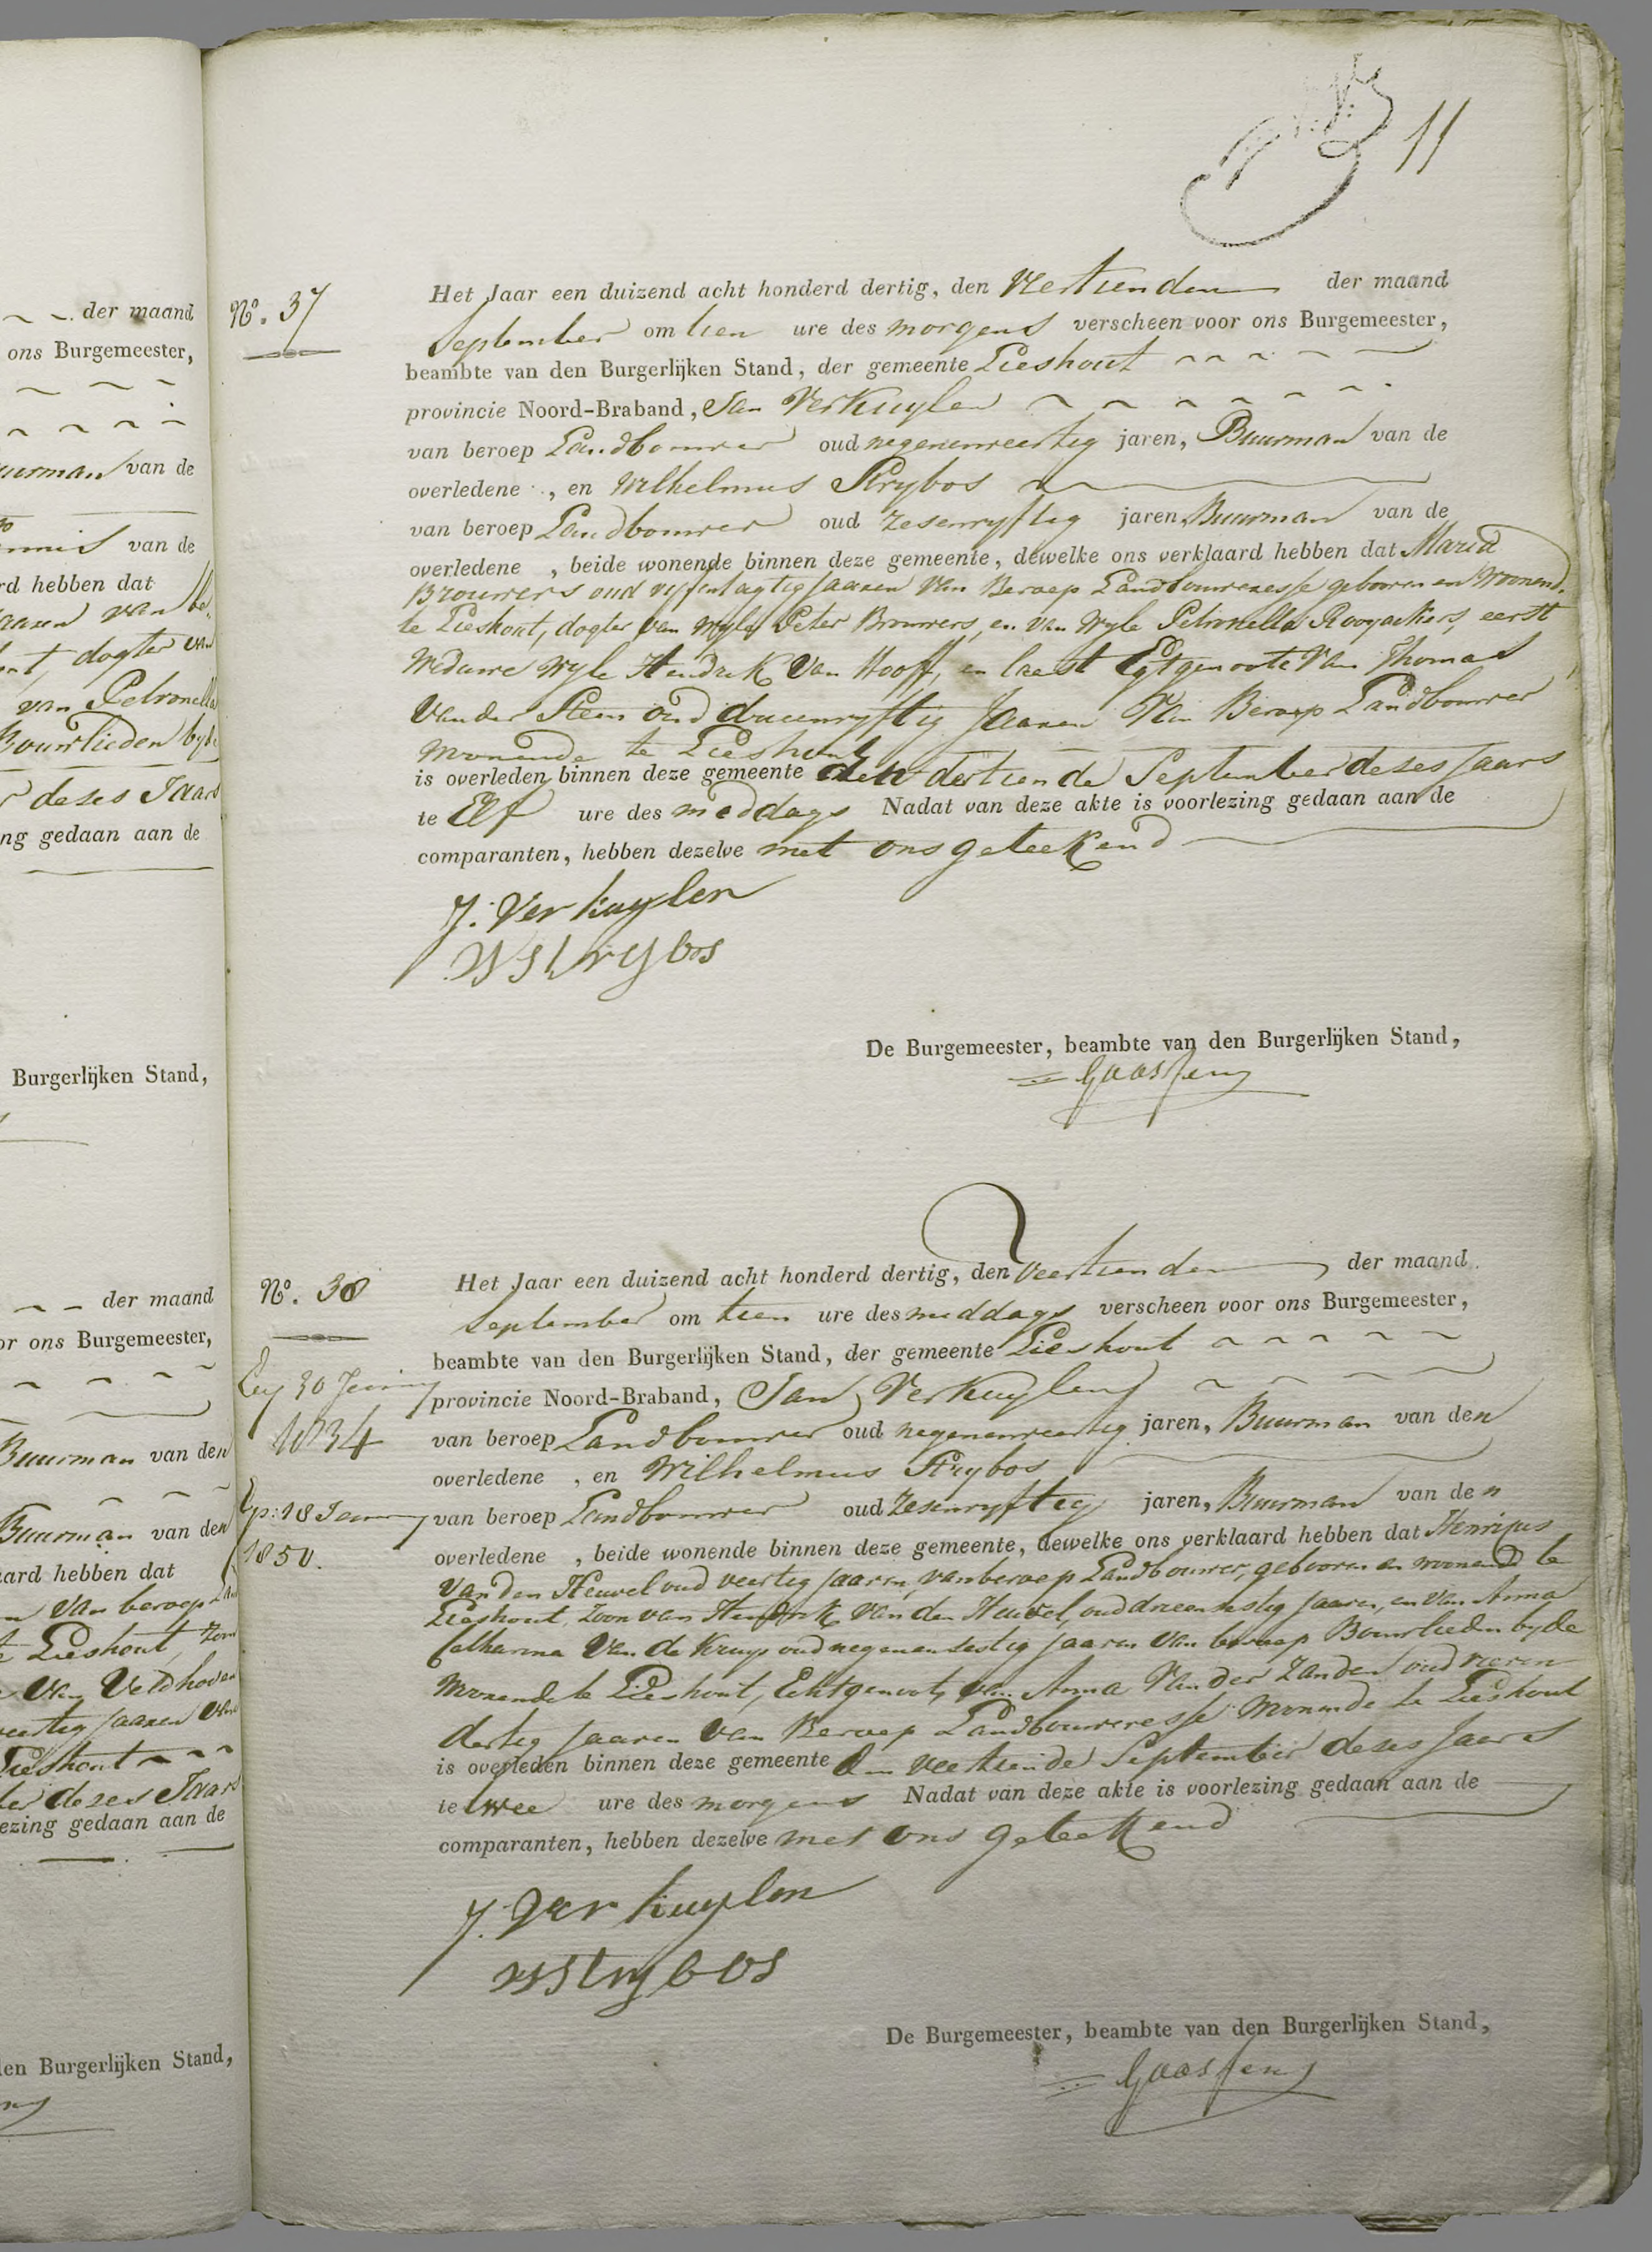 11
der maand
ons Burgemeester,
uurman van de
van de
rd hebben dat
dogter van
van Petronella
Bouwlieden byde
deses Jaars
ng gedaan aan de
Burgerlijken Stand,
der maand
or ons Burgemeester,
Buurman van den
Buurman van den
aard hebben dat
van beroep
te Lieshout, Zoon
van Veldhoven
veertig jaaren van
Lieshout
deses Jaars
ezing gedaan aan de
en Burgerlijken Stand,
No. 37
Het Jaar een duizend acht honderd dertig, den Veertienden der maand
September om tien ure des morgens verscheen voor ons Burgemeester,
beambte van den Burgerlijken Stand, der gemeente Lieshout
provincie Noord-Braband, Jan Verkuylen
van beroep Landbouwer oud negenenveertig jaren, Buurman van de
overledene , en Wilhelmus Strybos
van beroep Landbouwer oud zesenvyftig jaren, Buurman van de
overledene , beide wonende binnen deze gemeente, dewelke ons verklaard hebben dat Maria
Brouwers oud vyfentagtig Jaaren van Beroep Landbouweresse gebooren en Woonend.
te Lieshout, dogter van wyle Peter Brouwers, en van Wyle Petronella Rooyackers, eerst
Weduwe wyle Hendrik van Hooff, en laest Egtgenoote van Thomas
Van der Steen oud drieenvyftig Jaaren Van Beroep Landbouwer
Wonende te Lieshout
is overleden binnen deze gemeente den dertiende September deses Jaars
te Elf ure des middags Nadat van deze akte is voorlezing gedaan aan de
comparanten, hebben dezelve met ons geteekend
J. Verkuylen
W Strybos
De Burgemeester, beambte van den Burgerlijken Stand,
No. 38
30
1834
18
1850.
Het Jaar een duizend acht honderd dertig, den Veertienden der maand
September om tien ure des middags verscheen voor ons Burgemeester,
beambte van den Burgerlijken Stand, der gemeente Lieshout
provincie Noord-Braband, Jan Verkuylen
van beroep Landbouwer oud negenenveertig jaren, Buurman van den
overledene , en Wilhelmus Strybos
van beroep Landbouwer oud Zesenvyftig jaren, Buurman van den
overledene , beide wonende binnen deze gemeente, dewelke ons verklaard hebben dat Henricus
Van den Heuvel oud veertig jaaren, van beroep Landbouwer, gebooren en woonend te
Lieshout, Zoon van Hendrik van den Heuvel, oud drieensestig Jaaren, en van Anna
Catharina Van de Kruys oud negenensestig jaaren van beroep Bouwlieden byde
Wonende te Lieshout, Echtgenoot van Anna Van der Zanden oud vieren
dertig jaaren van Beroep Landbouweresse Wonende te Lieshout
is overleden binnen deze gemeente den veertiende September deses Jaars
te twee ure des morgens Nadat van deze akte is voorlezing gedaan aan de
comparanten, hebben dezelve met ons geteekend
J. Verkuylen
W Strybos
De Burgemeester, beambte van den Burgerlijken Stand,